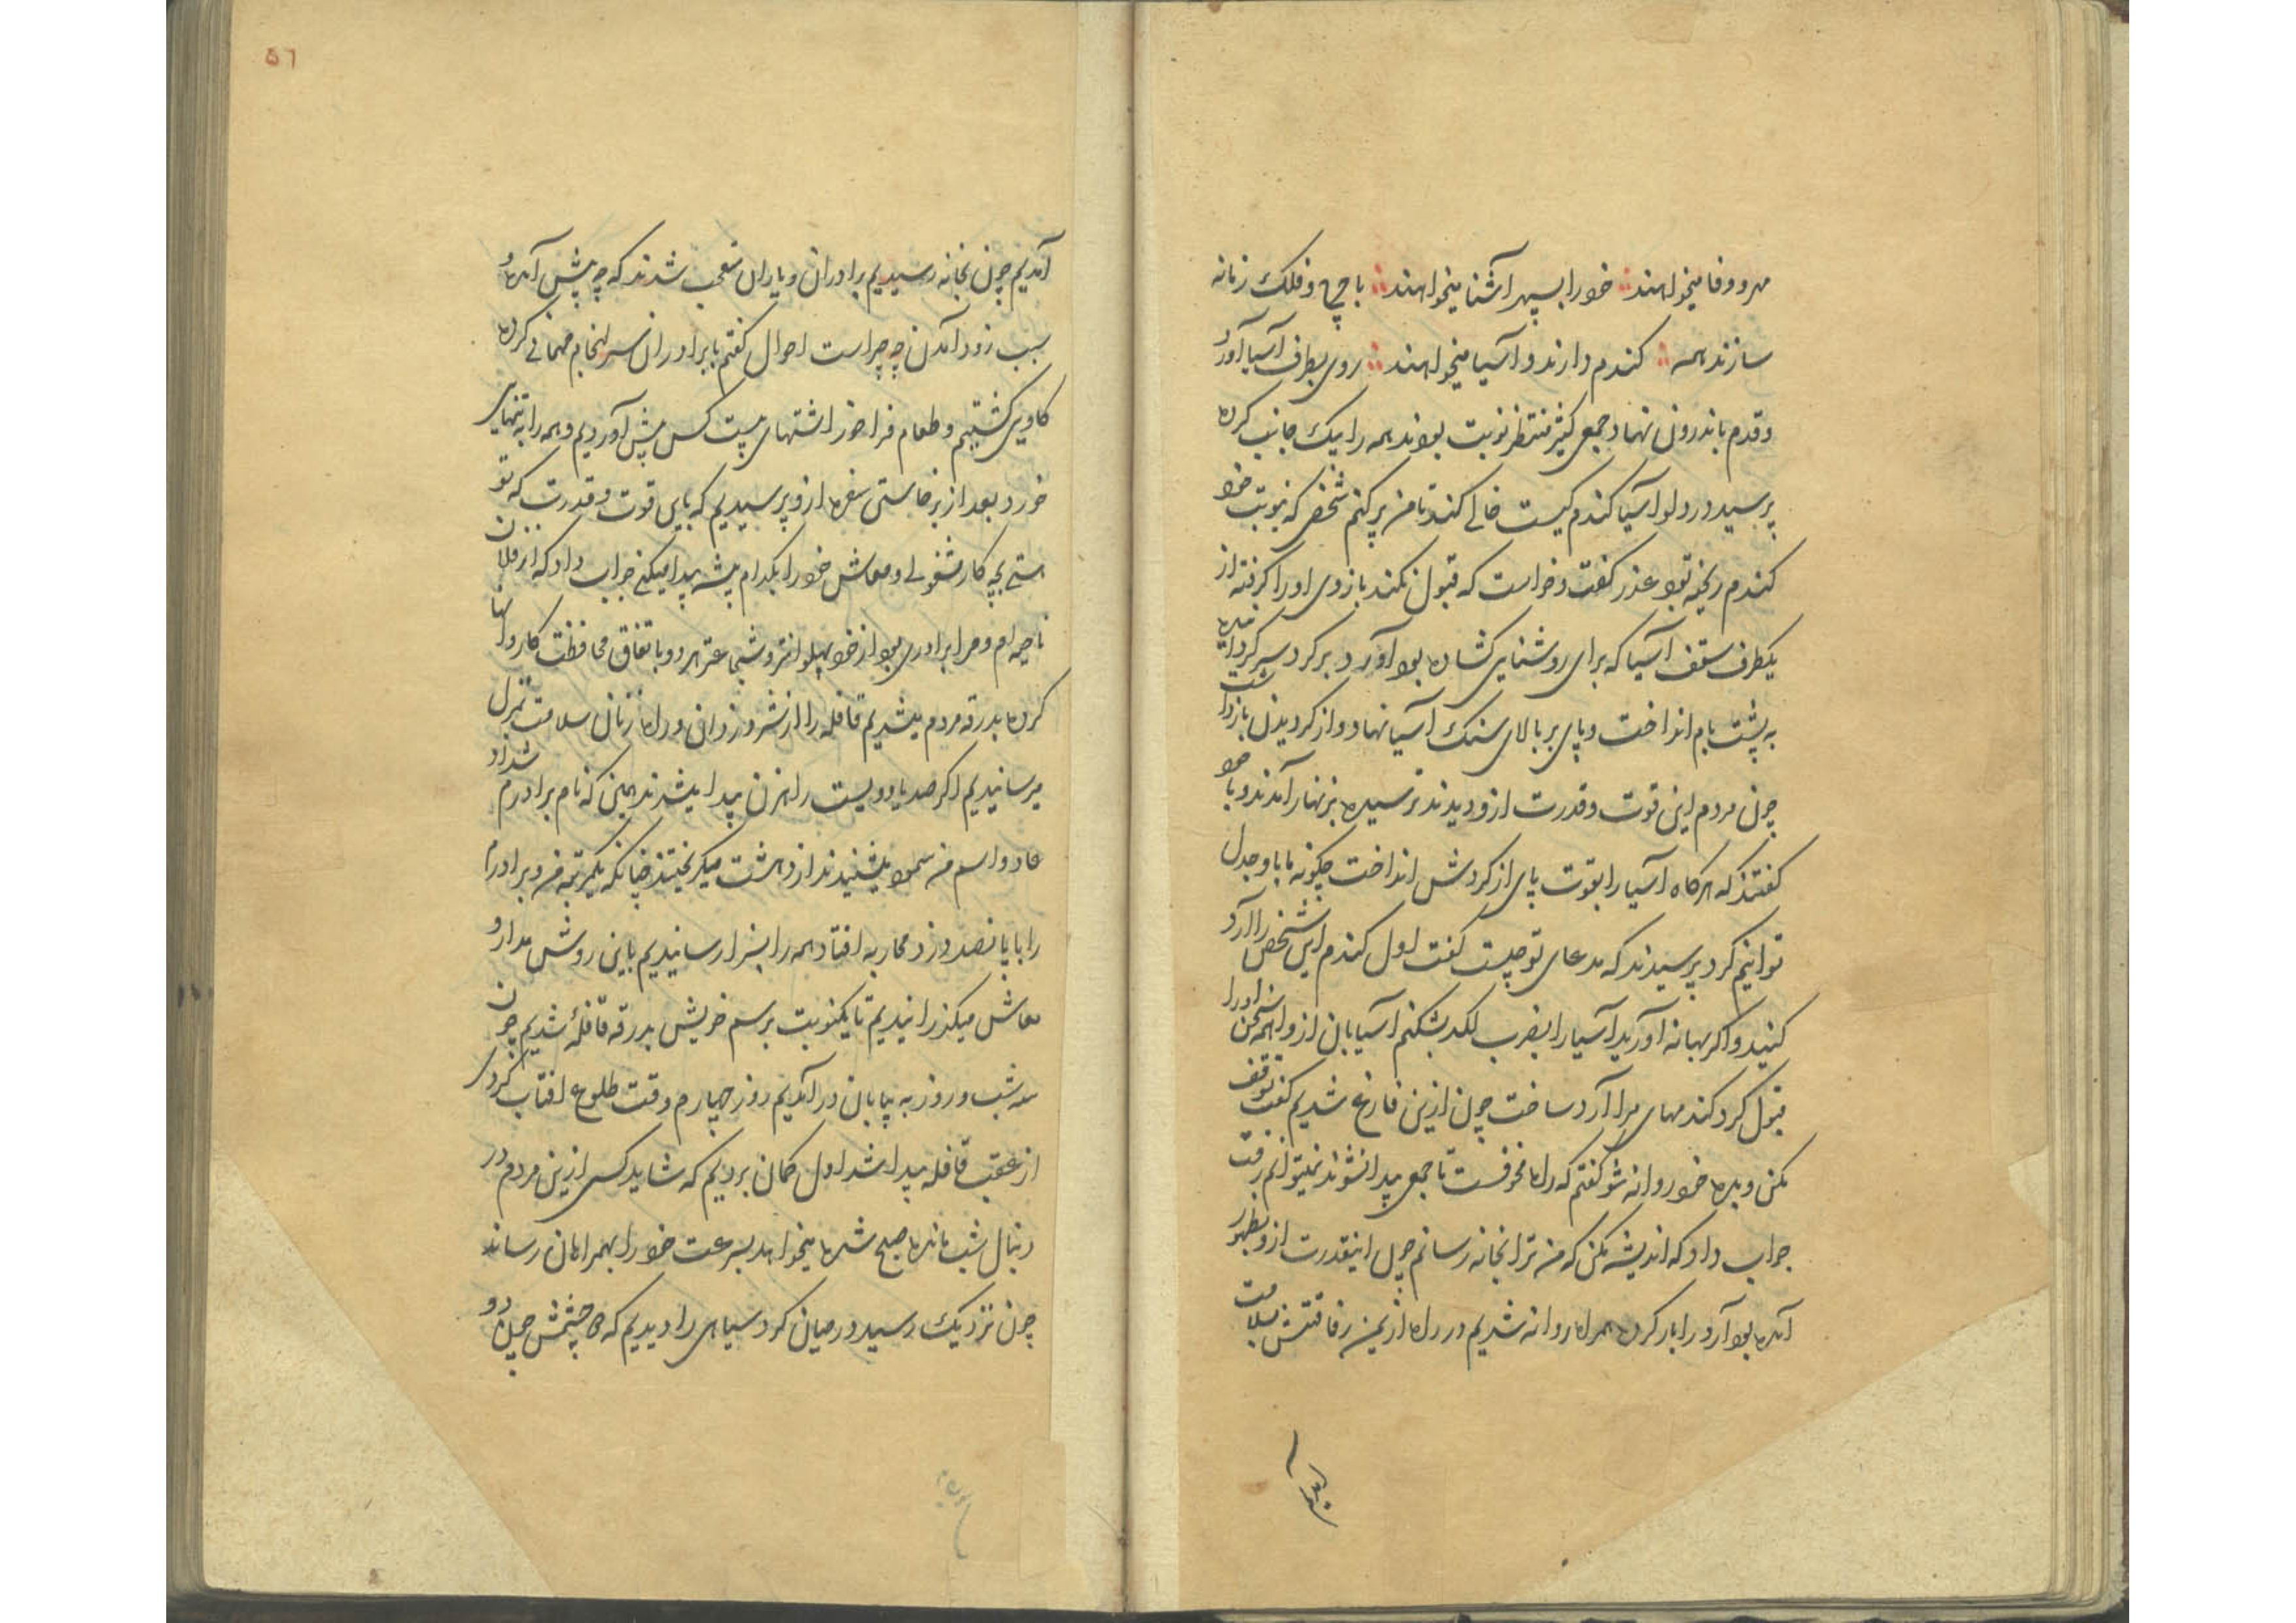 مهر و وفا میخواهند خود را بسپهر آشنا میخواهند با چرخ و فلک زمانه
سازند همه کندم دارند و آسیا میخواهند روی بطرف آسیا آورد
و قدم باندرون نهاد جمعی کثیر منتظر نوبت بودند همه را بیک جانب کرده
پرسید در دلو آسیا کندم کیست خالی کند تا من پر کنم شخصی که نوبت خود
کندم ریخته بود عذر کفت و خواست که قبول نکند بازوی او را کرفته از
یکطرف سقف آسیا که برای روشنایی کشاده بود آورد و بر کرد سر کردانیده
به پشت بام انداخت و پای بر بالای سنک آسیا نهاد و از کردیدن بازداشت
چون مردم این قوت و قدرت ازو دیدند ترسیده بزنهار آمدند و با خود
کفتند که هرکاه آسیا را بقوت پای از کردش انداخت چکونه ما با او جدل
توانیم کرد پرسیدند که مدعای تو چیست کفت اول کندم این شخص را آرد
کنید و اکر بهانه آورید آسیا را بضرب لکد بشکنم آسیابان از واهمه سخن او را
قبول کرد کندمهای مرا آرد ساخت چون ازین فارغ شدیم کفت توقف
مکن و براه خود روانه شو کفتم که راه مخوفست تا جمعی پیدا نشوند نمیتوانم رفت
جواب داد که اندیشه مکن که من ترا بخانه رسانم چون اینقدرت ازو بظهور
آمده بود آرد را بار کرده همراه روانه شدیم در راه از یمن رفاقتش سلامت
آمدیم
٥٦
آمدیم چون بخانه رسیدیم برادران و یاران متعجب شدند که چه پیش آمده و
سبب زود آمدن چه چیز است احوال کفتم با برادران سرانجام مهمانی کرده
کاوی کشتیم و طعام فراخور اشتهای بیست کس پیش آوردیم و همه را به تنهایی
خورد بعد از برخاستی سفره ازو پرسیدیم که باین قوت و قدرت که تو
هستی بچه کار مشغولی و معاش خود را بکدام پیشه پیدا میکنی جواب داد که از فلان
ناحیه ام و مرا برادری بود از خود پهلوانتر و شجاعتر هر دو باتفاق محافظت کاروانها
کرده بدرقه مردم میشدیم قافله را از شر دزدان و راه زنان سلامت بمنزل
میرسانیدیم اکر صد یا دویست راهزن پیدا میشدند همین که نام برادرم شداد
عاد و اسم من سمود میشنیدند از دهشت میکریختند چنانکه یکمرتبه من و برادرم
را با پانصد دزد محاربه افتاد همه را بسزا رسانیدیم باین روش مدار و
معاش میکذرانیدیم تا یکنوبت برسم خویش بدرقه قافلهٔ شدیم چون
سه شب و روز به بیابان در آمدیم روز چهارم وقت طلوع افتاب کردی
از عقب قافله پیدا شد اول کمان بردیم که شاید کسی ازین مردم در
دنبال شب مانده صبح شده میخواهد بسرعت خود را بهمراهان رساند
چون نزدیک رسید در میان کرد سیاهی را دیدیم که چشمش چون دو